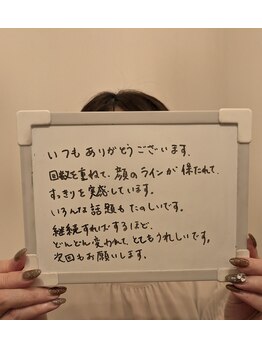 いつもありがとうございます.
回数を重ねて、顔のラインが保たれて、
すっきりを実感しています。
いろんな話題もたのしいです。
継続すればするほど、
どんどん変われて、とてもうれしいです。
次回もお願いします。